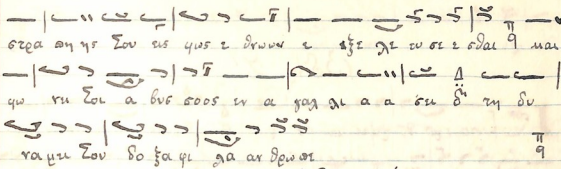 στρα πη ης Σου εις φως ε θνωων ε ε ξε λε ευ σε ε σθαι π̈ q και
φω νη Σοι α βυσ σοος εν α γαλ λι α α σει δι τη δυ
να μει Σου δο ξα φι λα αν θρω πε π̈ q